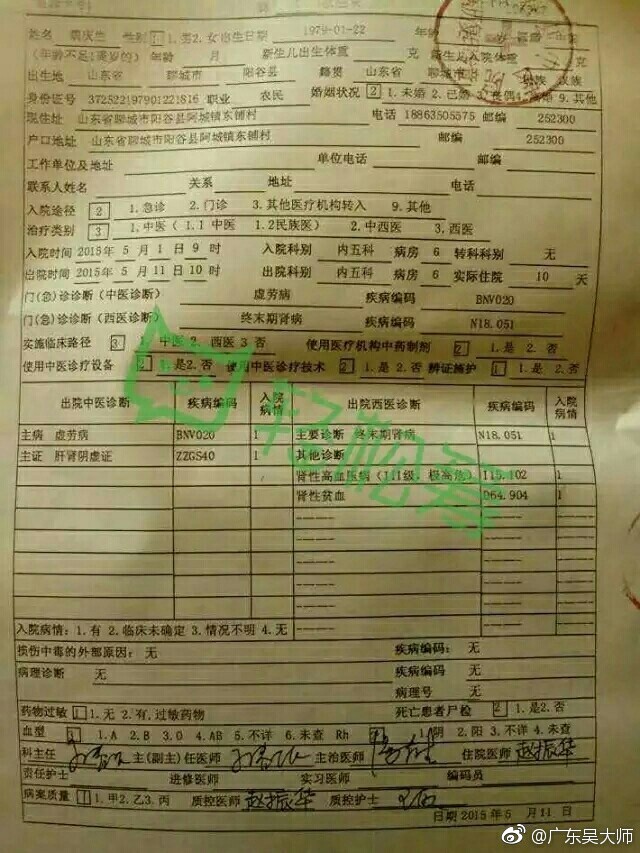 姓名 性别 1 1.男 2.女 出生日期 1979-01-22 年龄
(年龄不足1周岁的) 年龄 月 新生儿出生体重 克 新生儿入院体重 克
出生地 山东省 聊城市 阳谷县 籍贯 山东省 聊城市 民族 汉族
身份证号 372522197901221816 职业 农民 婚姻状况 2 1.未婚 2.已婚 3.丧偶 4.离婚 9.其他
现住址 山东省聊城市阳谷县阿城镇东铺村 电话 18863505575 邮编 252300
户口地址 山东省聊城市阳谷县阿城镇东铺村 邮编 252300
工作单位及地址 单位电话 邮编
联系人姓名 关系 地址 电话
入院途径 2 1.急诊 2.门诊 3.其他医疗机构转入 9.其他
治疗类别 3 1.中医 (1.1 中医 1.2民族医) 2.中西医 3.西医
入院时间 2015年 5 月 1 日 9 时 入院科别 内五科 病房 6 转科科别 无
出院时间 2015年 5 月 11 日 10 时 出院科别 内五科 病房 6 实际住院 10 天
门(急)诊诊断(中医诊断) 虚劳病 疾病编码 BNV020
门(急)诊诊断(西医诊断) 终末期肾病 疾病编码 N18.051
实施临床路径 3 1.中医 2.西医 3 否 使用医疗机构中药制剂 2 1.是 2.否
使用中医诊疗设备 2 1.是2.否 使用中医诊疗技术 2 1.是 2.否 辨证施护 1 1.是 2.否
出院中医诊断 疾病编码 入院病情 出院西医诊断 疾病编码 入院病情
主病 虚劳病 BNV020 1 主要诊断 终末期肾病 N18.051 1
主证 肝肾阴虚证 ZZGS40 1 其他诊断
肾性高血压病(III级, 极高危) I15.102 1
肾性贫血 D64.904 1
轻松筹
入院病情: 1.有 2.临床未确定 3.情况不明 4.无
损伤中毒的外部原因: 无 疾病编码: 无
病理诊断 无 疾病编码 无
病理号 无
药物过敏 1 1.无 2.有,过敏药物 死亡患者尸检 2 1.是2.否
血型 1 1.A 2.B 3.O 4.AB 5.不详 6.未查 Rh 1.阴 2.阳 3.不详 4.未查
科主任 主(副主)任医师 主治医师 住院医师 赵振华
责任护士 进修医师 实习医师 编码员
病案质量 1 1.甲2.乙3.丙 质控医师 赵振华 质控护士
日期 2015年 5 月 11 日
@广东吴大师